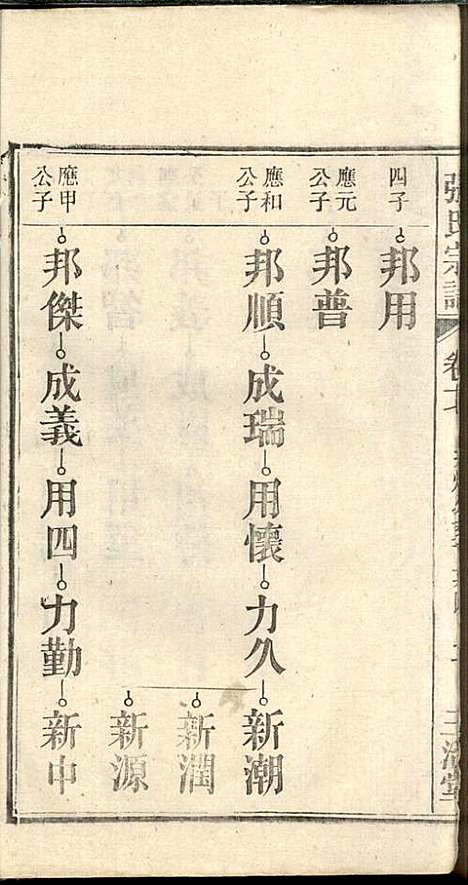 張氏宗譜
四子 邦用
應元公子 邦普
應和公子 邦順 成瑞 用懷 力久 新潮
新潤
新源
應甲公子 邦傑 成義 用四 力勤 新中